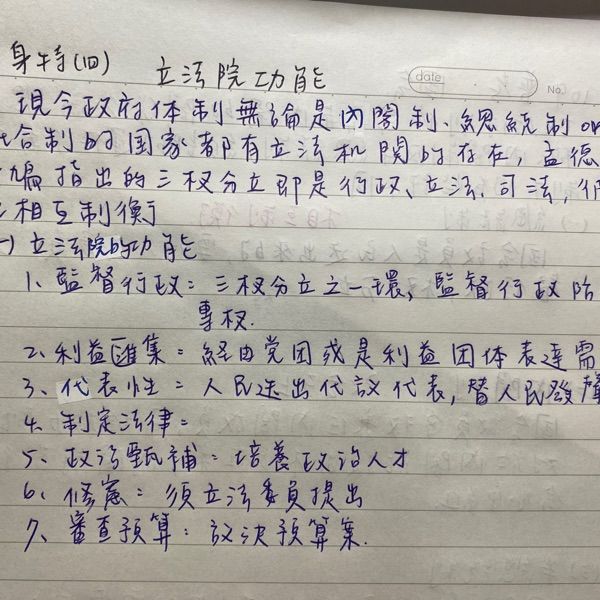 身特(四) 立法院功能
date
No.
現今政府体制無論是內閣制、總統制
合制的国家都有立法机関的存在，孟德
鳩指出的三权分立即是行政、立法、司法，
相互制衡
一)立法院的功能
1、監督行政：三权分立之一環，監督行政防
專权.
2、利益匯集：経由党团或是利益团体表達需
3、代表性：人民选出代議代表，替人民發聲
4、制定法律：
5、政治甄補：培養政治人才
6、修憲：須立法委員提出
7、審查預算：議決預算案.